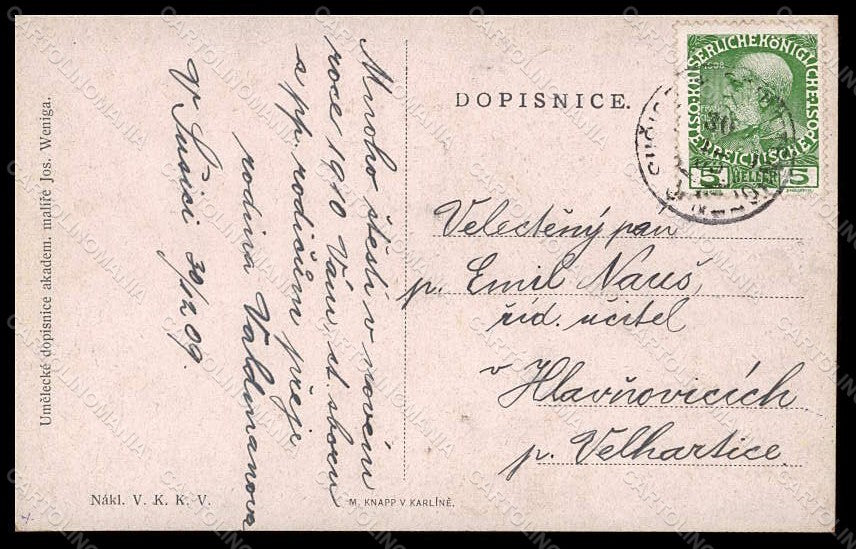 Umělecké dopisnice akadem. malíře Jos. Weniga.
Nákl. V. K. K. V.
M. KNAPP V KARLÍNĚ.
DOPISNICE.
KAISERLICHE KÖNIGLICHE
1908
5 HELLER 5
30
Mnoho štěstí v novém
roce 1910 Vám, ct. sboru
a pp. rodičům přeje
rodina Valdmanova
V Sušici 30/12 09.
Velectěný pan
p. Emil Nauš,
říd. učitel
v Hlavňovicích
p. Velhartice.
CARTOLINOMANIA